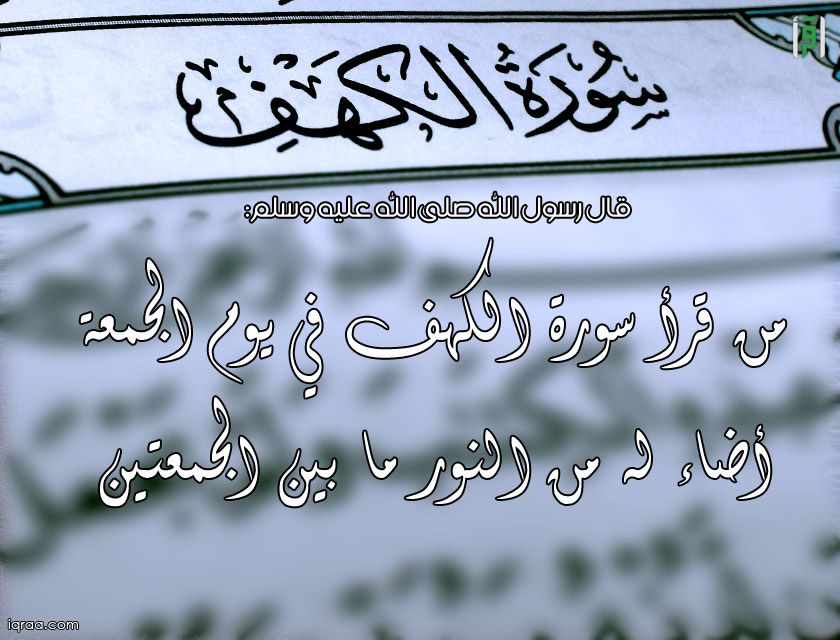 سُورَةُ الكَهْفِ
قال رسول الله صلى الله عليه وسلم:
من قرأ سورة الكهف في يوم الجمعة
أضاء له من النور ما بين الجمعتين
iqraa.com